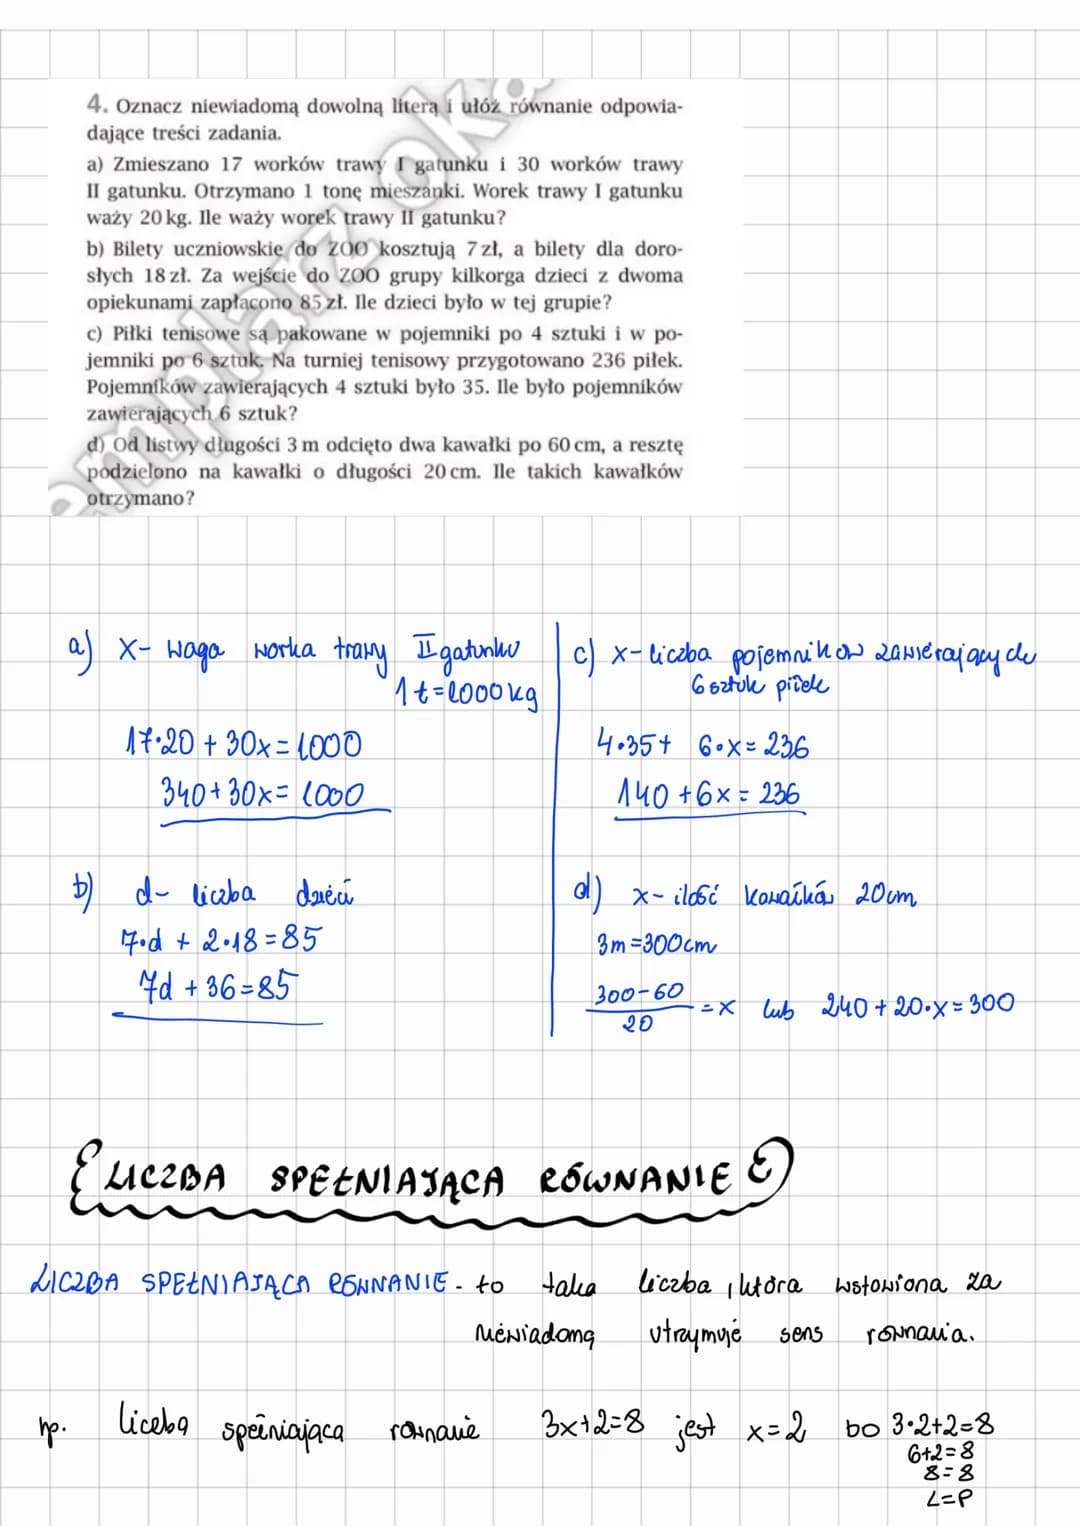 4. Oznacz niewiadomą dowolną literą i ułóż równanie odpowia-
dające treści zadania.
a) Zmieszano 17 worków trawy I gatunku i 30 worków trawy
II gatunku. Otrzymano 1 tonę mieszanki. Worek trawy I gatunku
waży 20 kg. Ile waży worek trawy II gatunku?
b) Bilety uczniowskie do ZOO kosztują 7 zł, a bilety dla doro-
słych 18 zł. Za wejście do ZOO grupy kilkorga dzieci z dwoma
opiekunami zapłacono 85 zł. Ile dzieci było w tej grupie?
c) Piłki tenisowe są pakowane w pojemniki po 4 sztuki i w po-
jemniki po 6 sztuk. Na turniej tenisowy przygotowano 236 piłek.
Pojemników zawierających 4 sztuki było 35. Ile było pojemników
zawierających 6 sztuk?
d) Od listwy długości 3 m odcięto dwa kawałki po 60 cm, a resztę
podzielono na kawałki o długości 20 cm. Ile takich kawałków
otrzymano?
a) x- waga worka trawy II gatunku
1t=1000kg
17·20+30x=1000
340+30x=1000
b) d- liczba dzieci
7·d + 2·18=85
7d +36=85
c) x-liczba pojemników zawierających
6 sztuk piłek
4·35+ 6·x=236
140+6x=236
d) x-ilość kawałków 20cm
3m=300cm
300-60
20
=x lub 240+20·x=300
LICZBA SPEŁNIAJĄCA RÓWNANIE
LICZBA SPEŁNIAJĄCA RÓWNANIE - to taka liczba, która wstawiona za
niewiadomą utrzymuje sens równania.
np. liczbą spełniającą równanie 3x+2=8 jest x=2 bo 3·2+2=8
6+2=8
8=8
L=P